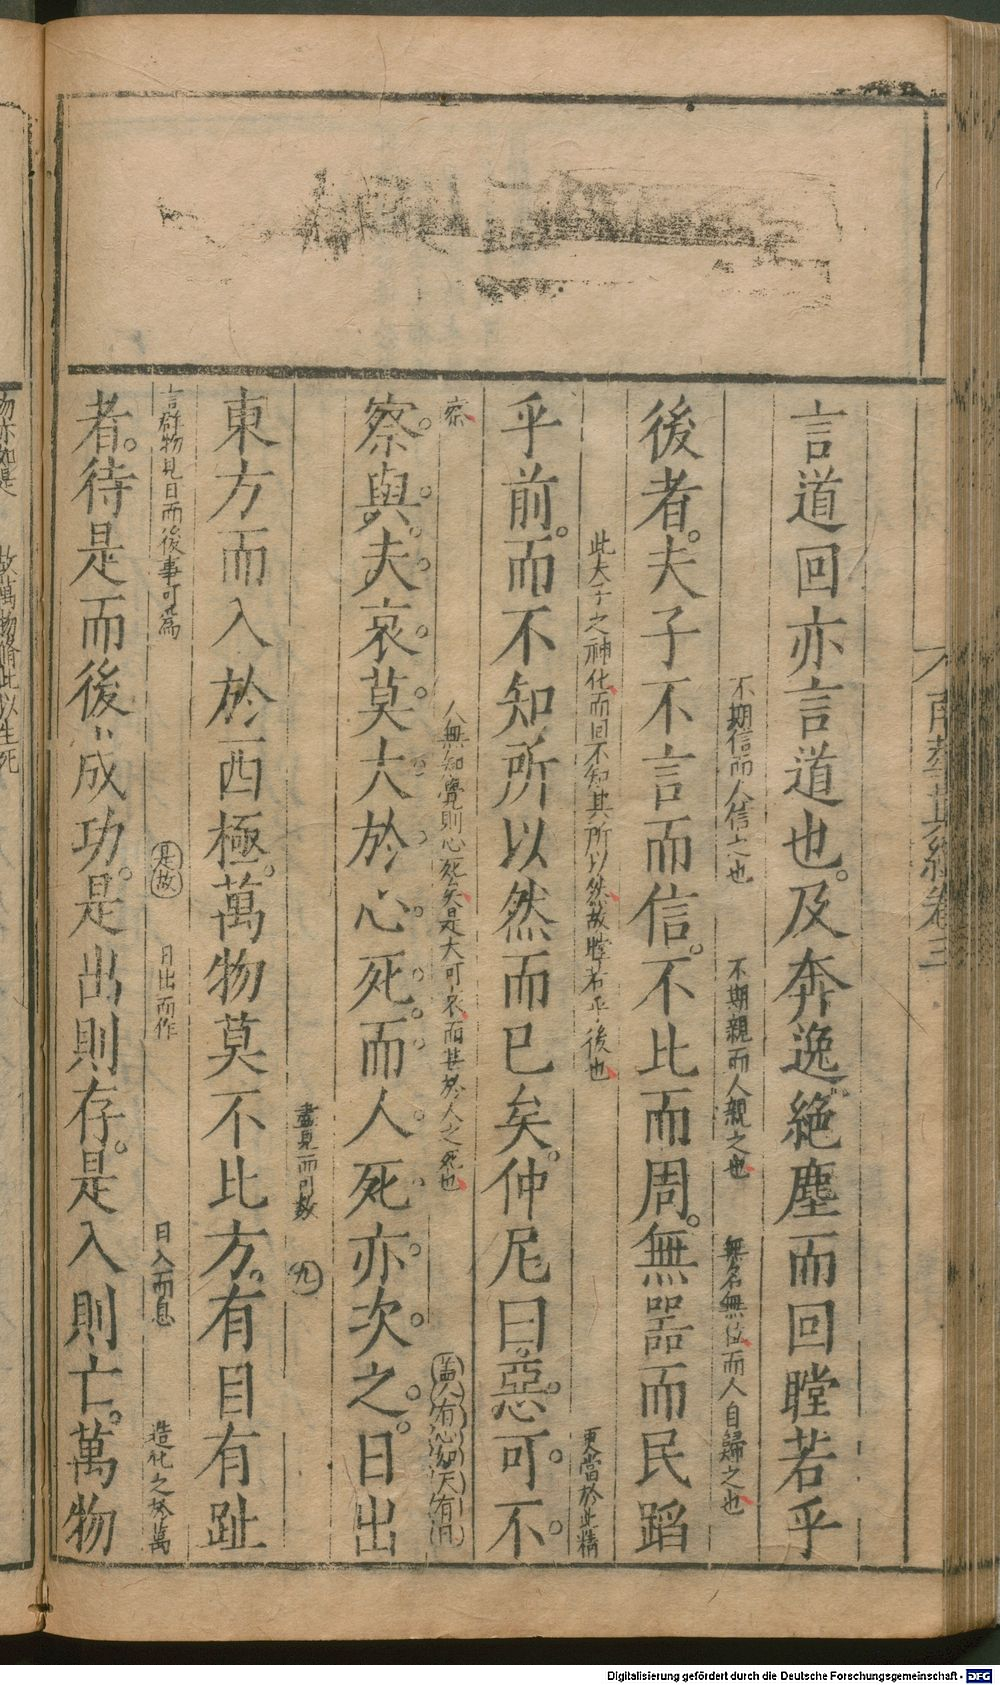 南華真經卷三
言道回亦言道也及奔逸絕塵而回瞠若乎
不期信而人信之也
不期親而人親之也
無名無位而人自歸之也
後者夫子不言而信不比而周無噐而民蹈
此夫子之神化而回不知其所以然故瞠若乎後也
更當於此精
乎前而不知所以然而已矣仲尼曰惡可不
察
人無知覺則心死矣是大可哀而甚於人之死也
蓋人有心如天有日
察與夫哀莫大於心死而人死亦次之日出
盡見而可數
九
東方而入於西極萬物莫不比方有目有趾
言群物見日而後事可爲
是故
日出而作
日入而息
造化之於萬
者待是而後成功是出則存是入則亡萬物
物亦如是
故萬物循此以生死
Digitalisierung gefördert durch die Deutsche Forschungsgemeinschaft - DFG